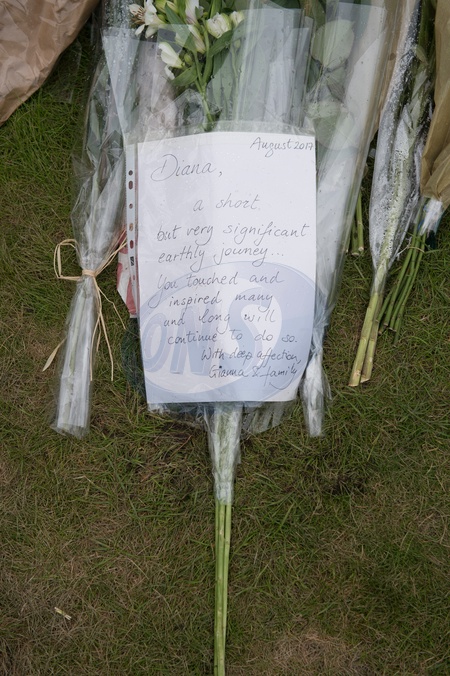 August 2017
Diana,
a short,
but very significant
earthly jouney...
You touched and
inspired many
and long will
continue to do so.
With deep affection,
Gianna & family